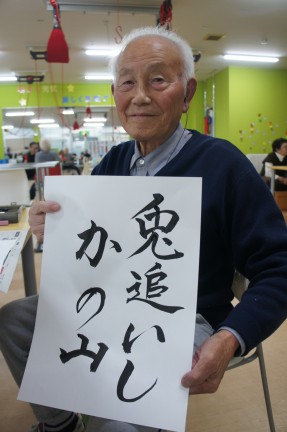 兎追いし
かの山